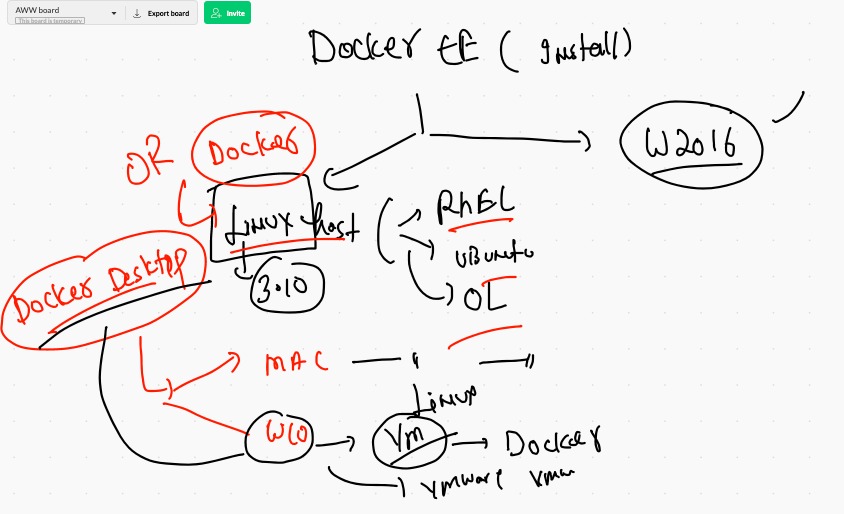 AWW board
This board is temporary
Export board
Invite
Docker EE ( Install)
OR
Docker
W2016
Linux host
RhEL
Ubuntu
OL
3.10
Docker Desktop
MAC
Linux
W10
Vm
Docker
vmware